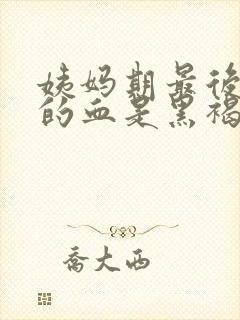 姨妈期最後
的血是黑褐
喬大西